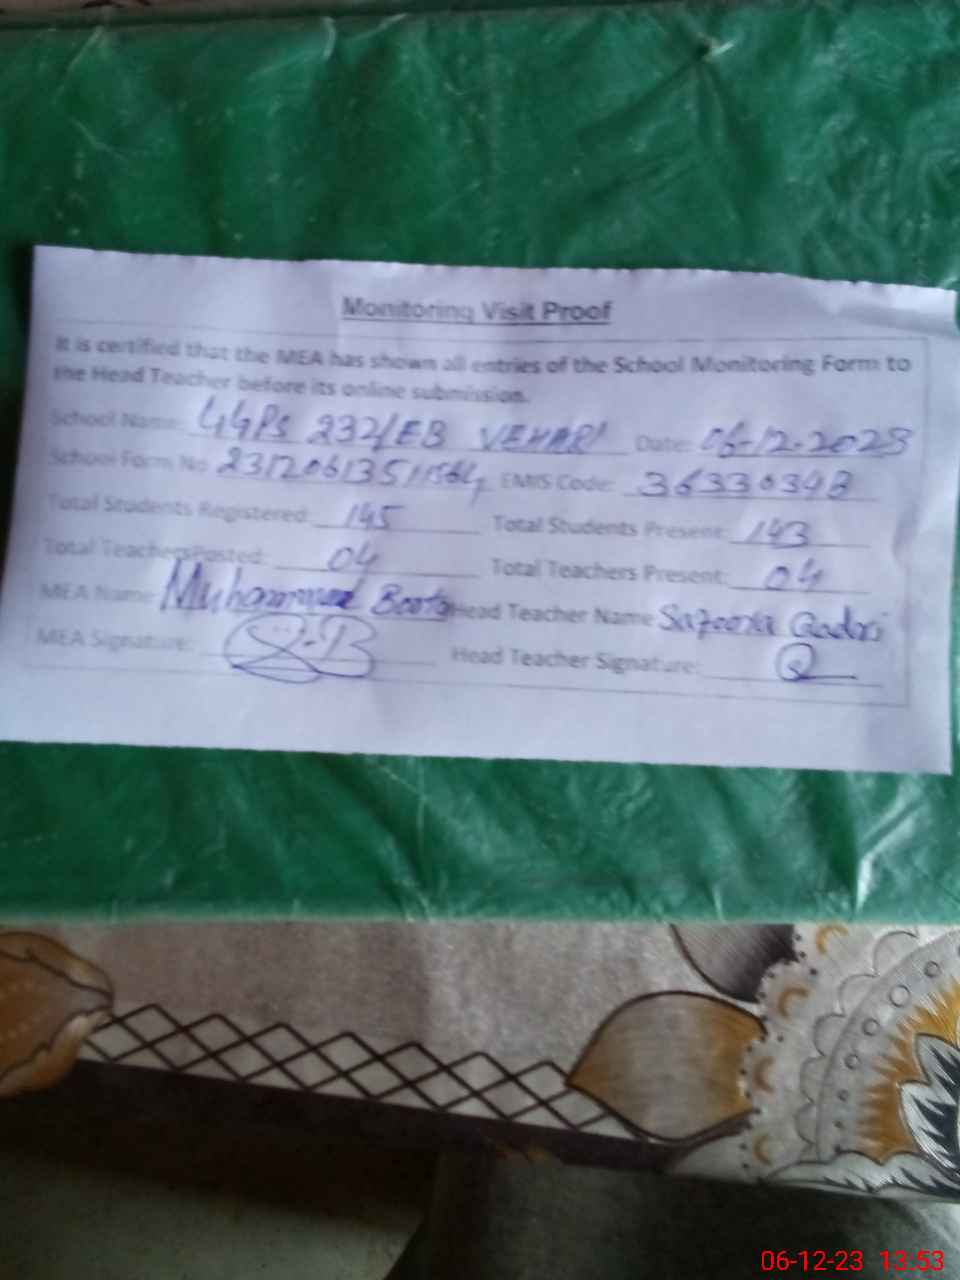 Monitoring Visit Proof
It is certified that the MEA has shown all entries of the School Monitoring Form to
the Head Teacher before its online submission.
School Name: GGPS 232/EB VEHARI Date: 06-12-2023
School Form No 23120613511564 EMIS Code: 36330398
Total Students Registered: 145 Total Students Present: 143
Total Teachers Posted: 04 Total Teachers Present: 04
MEA Name: Muhammad Boota Head Teacher Name Qadri
MEA Signature: Head Teacher Signature:
06-12-23 13:53